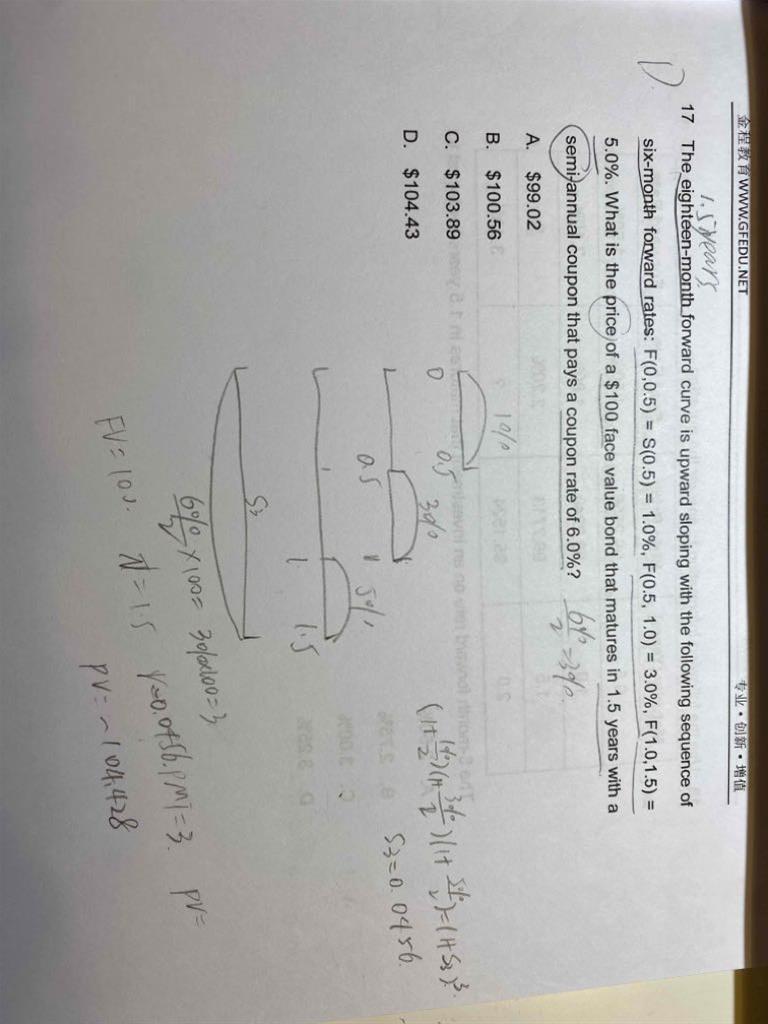 金程教育WWW.GFEDU.NET 专业 • 创新 • 增值
17 The eighteen-month forward curve is upward sloping with the following sequence of
1.5years
D.
six-month forward rates: F(0,0.5) = S(0.5) = 1.0%, F(0.5, 1.0) = 3.0%, F(1.0,1.5) =
5.0%. What is the price of a $100 face value bond that matures in 1.5 years with a
semi-annual coupon that pays a coupon rate of 6.0%?
6%/2=3%.
A. $99.02
B. $100.56
C. $103.89
D. $104.43
1%
0 0.5 3%
0.5 1 5%
1 1.5
S3
(1+1%/2)(1+3%/2)(1+5%/2)=(1+S3)³.
S3=0.0456.
6%/2×100=3%×100=3
FV=100. N=1.5 Y=0.0456. PMT=3. PV=
PV=-104.428